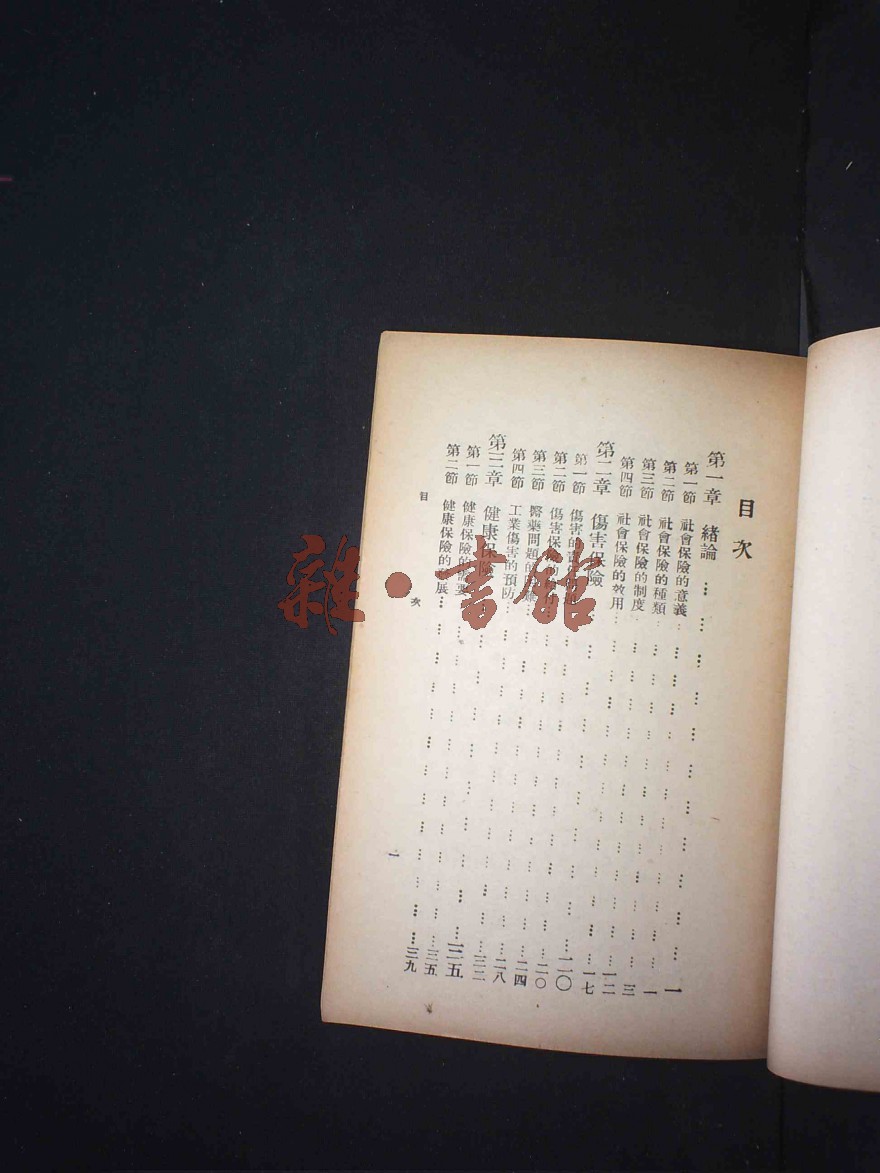 目次
第一章 緒論 … 一
第一節 社會保險的意義 … 一
第二節 社會保險的種類 … 三
第三節 社會保險的制度 … 一二
第四節 社會保險的效用 … 一七
第二章 傷害保險 … 二〇
第一節 傷害的 … 二〇
第二節 傷害保 … 二四
第三節 醫藥問題的 … 二八
第四節 工業傷害的預防 … 三二
第三章 健康保險 … 三五
第一節 健康保險的需要 … 三五
第二節 健康保險的發展 … 三九
目次
一
雜·書館